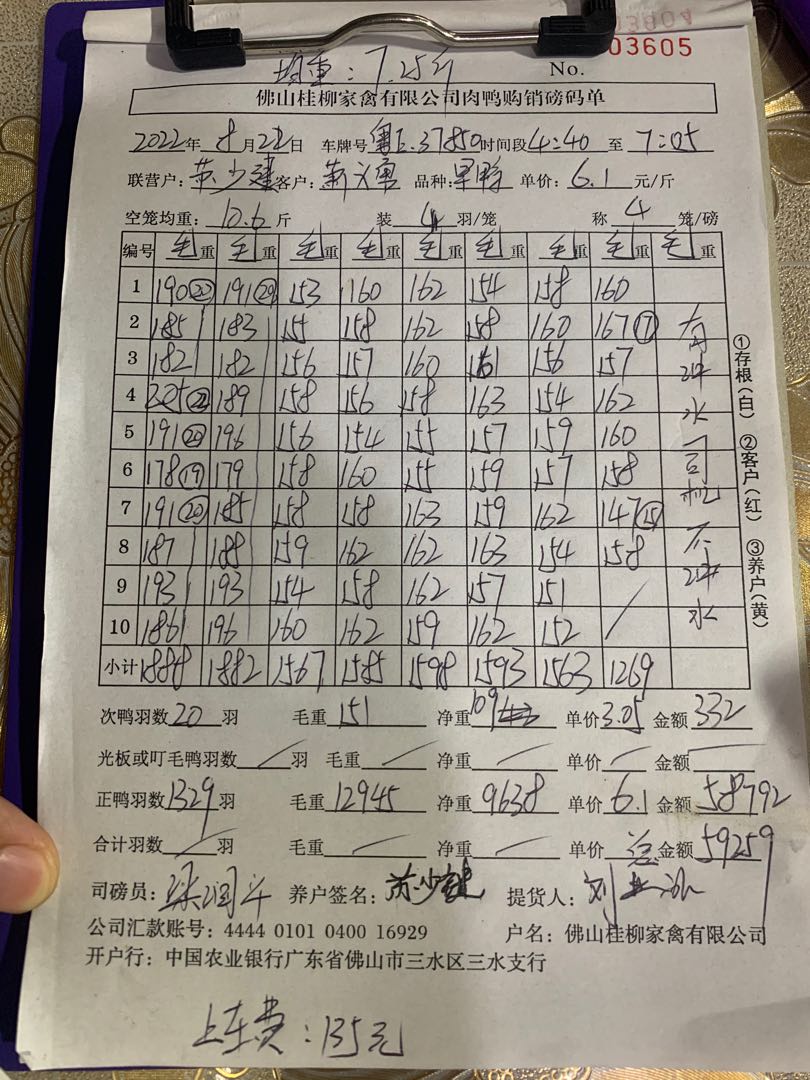 03604
03605
均重：7.25斤 No.
佛山桂柳家禽有限公司肉鸭购销磅码单
2022年 8月22日 车牌号 粤E.37850 时间段 4:40 至 7:05
联营户：苏少建 客户： 品种：旱鸭 单价：6.1 元/斤
空笼均重：10.6斤 装 4 羽/笼 称 4 笼/磅
编号 毛重 毛重 毛重 毛重 毛重 毛重 毛重 毛重 毛重
1 190 ⑳ 191 153 160 162 154 158 160
2 185 183 155 158 162 158 160 167 ⑰
3 182 182 156 157 160 161 156 157
4 205 189 158 156 158 163 154 162
5 191 ⑳ 196 156 154 155 157 159 160
6 178 ⑲ 179 158 160 155 159 157 158
7 191 ⑳ 185 158 158 163 159 162 147 ⑮
8 187 188 159 162 162 163 154 158
9 193 193 154 158 162 157 151 /
10 186 196 160 162 159 162 152
小计 1888 1882 1567 1585 1598 1593 1563 1269
有冲水司机不冲水
①存根（白） ②客户（红） ③养户（黄）
次鸭羽数 20 羽 毛重 151 净重 109 单价 3.05 金额 332
光板或叮毛鸭羽数 / 羽 毛重 / 净重 / 单价 / 金额 /
正鸭羽数 1329 羽 毛重 12945 净重 9638 单价 6.1 金额 58792
合计羽数 / 羽 毛重 / 净重 / 单价 总金额 59259
司磅员：梁润斗 养户签名：苏少建 提货人：刘
公司汇款账号：4444 0101 0400 16929 户名：佛山桂柳家禽有限公司
开户行：中国农业银行广东省佛山市三水区三水支行
上车费：135元